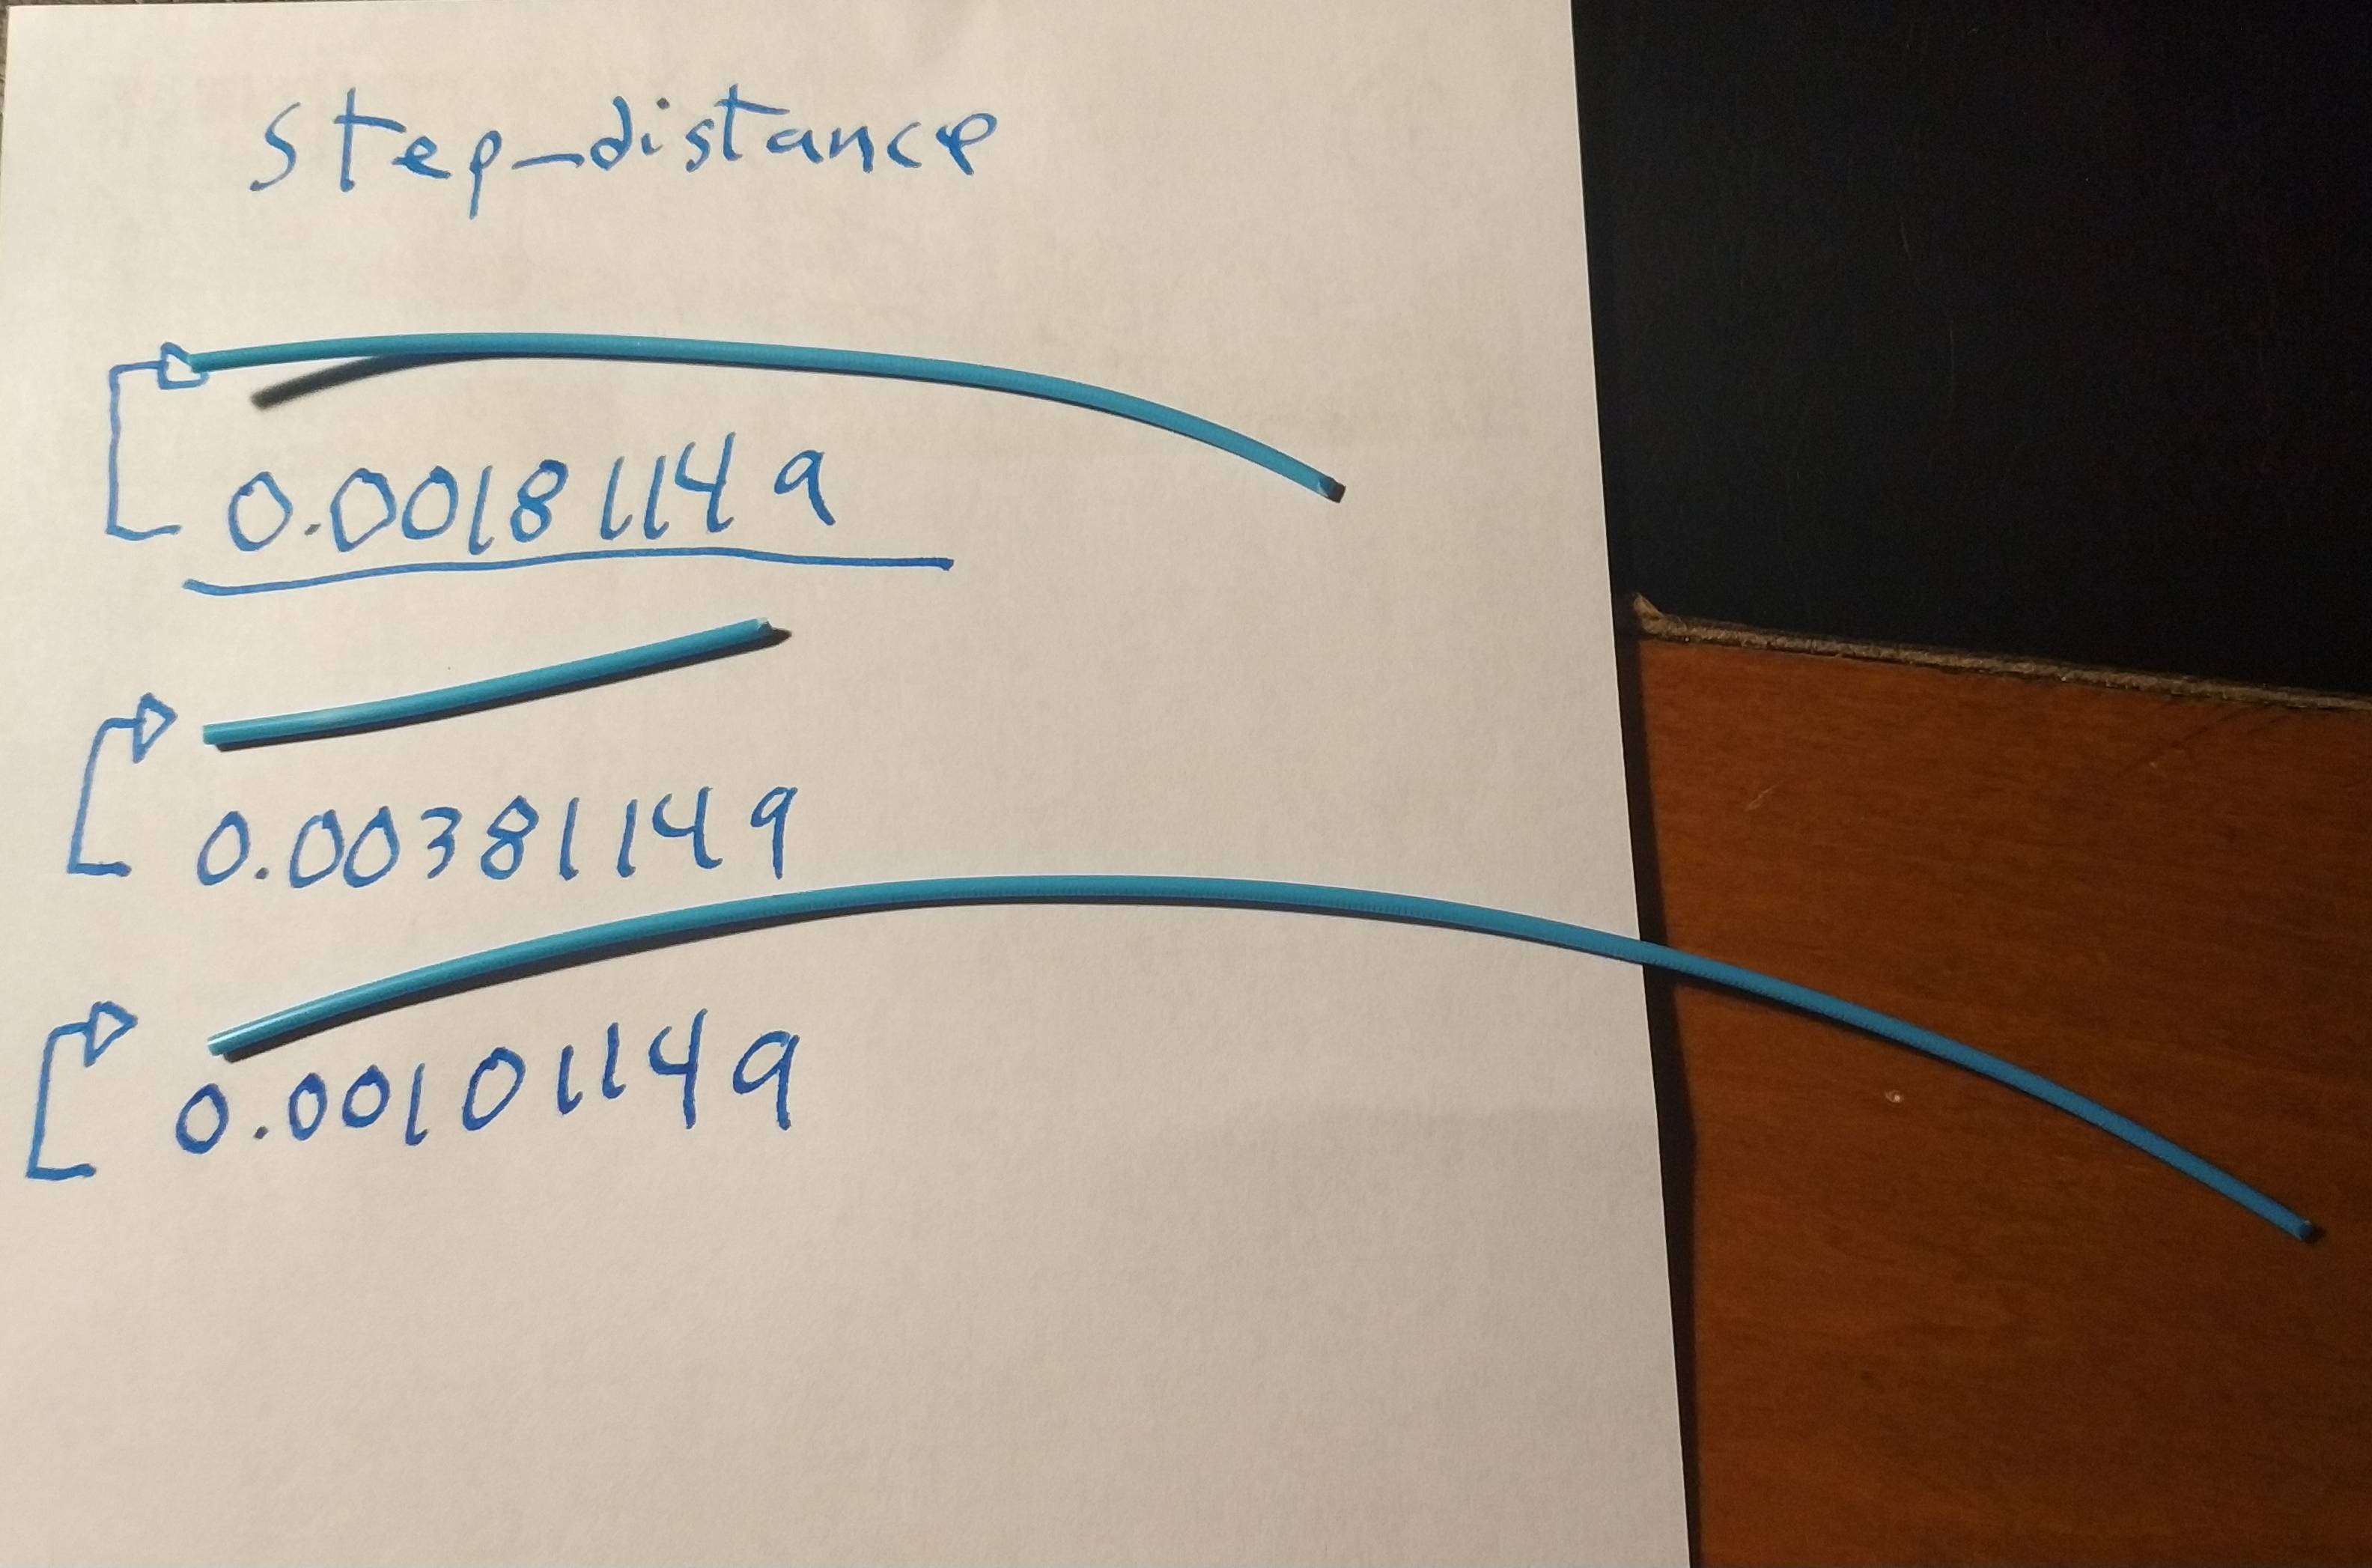 step_distance
0.00181149
0.00381149
0.00101149